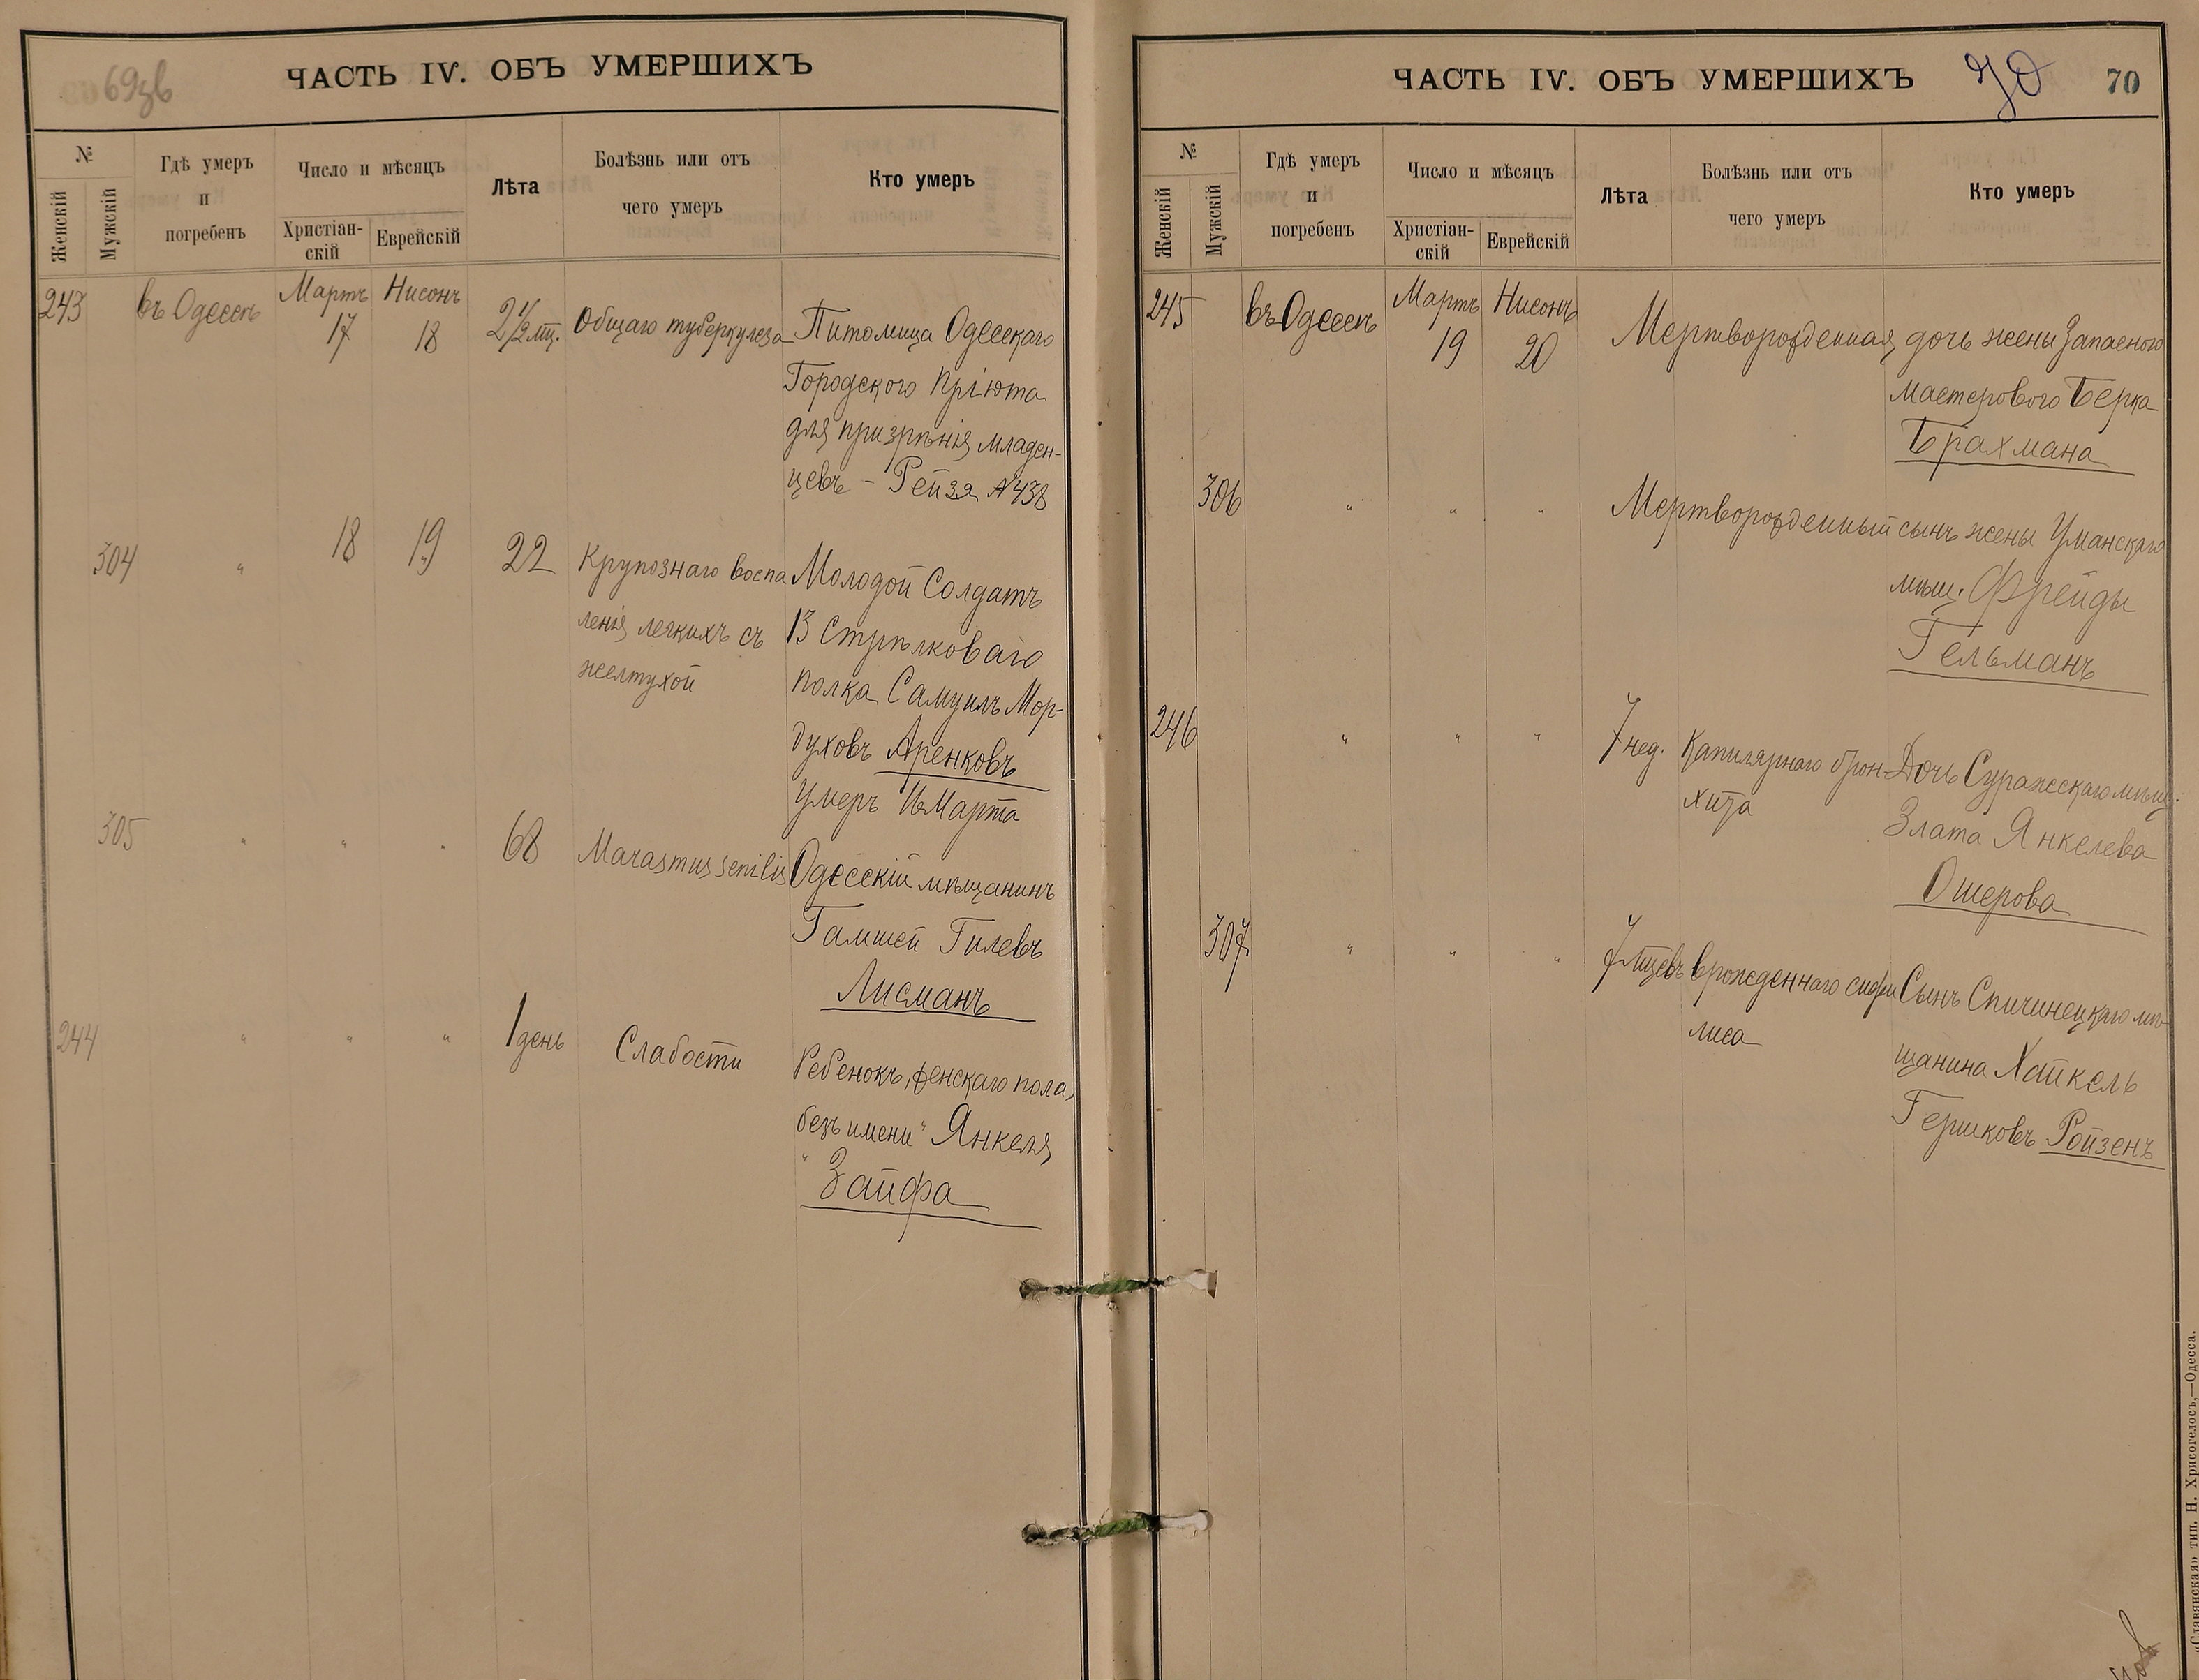 69 зв
ЧАСТЬ IV. ОБЪ УМЕРШИХЪ
№
Женскій
Мужскій
Гдѣ умеръ
и
погребенъ
Число и мѣсяцъ
Христіан-
скій
Еврейскій
Лѣта
Болѣзнь или отъ
чего умеръ
Кто умеръ
243 въ Одессѣ Мартъ 17 Нисонъ 18 2 1/2 мц. Общаго туберкулеза Питомица Одесскаго
Городского Пріюта
для призрѣнія младен-
цевъ - Рейзя №438
304 " 18 19 22 Крупознаго воспа Молодой Солдатъ
ленія легкихъ съ 13 Стрѣлковаго
желтухой полка Самуилъ Мор-
духовъ Аренковъ
умеръ 16 Марта
305 " " " 68 Marasmus senilis Одесскій мѣщанинъ
Гамшей Гилевъ
Лисманъ
244 " " " 1 день Слабости Ребенокъ, женскаго пола,
безъ имени" Янкеля
" Зайфа
ЧАСТЬ IV. ОБЪ УМЕРШИХЪ
70
70
№
Женскій
Мужскій
Гдѣ умеръ
и
погребенъ
Число и мѣсяцъ
Христіан-
скій
Еврейскій
Лѣта
Болѣзнь или отъ
чего умеръ
Кто умеръ
245 въ Одессѣ Мартъ 19 Нисонъ 20 Мертворожденная дочь жены Запасного
мастерового Берка
Брахмана
306 " " " Мертворожденный сынъ жены Уманскаго
мѣщ. Фрейды
Гельманъ
246 " " " 7 нед. Капилярнаго брон Дочь Суражскаго мѣщ.
хита Злата Янкелева
Ошерова
307 " " " 7 мцевъ врожденнаго сифи Сынъ Спичинецкаго мѣ-
лиса щанина Хайкель
Гершковъ Ройзенъ
«Славянская» тип. Н. Хрисогелосъ,—Одесса.